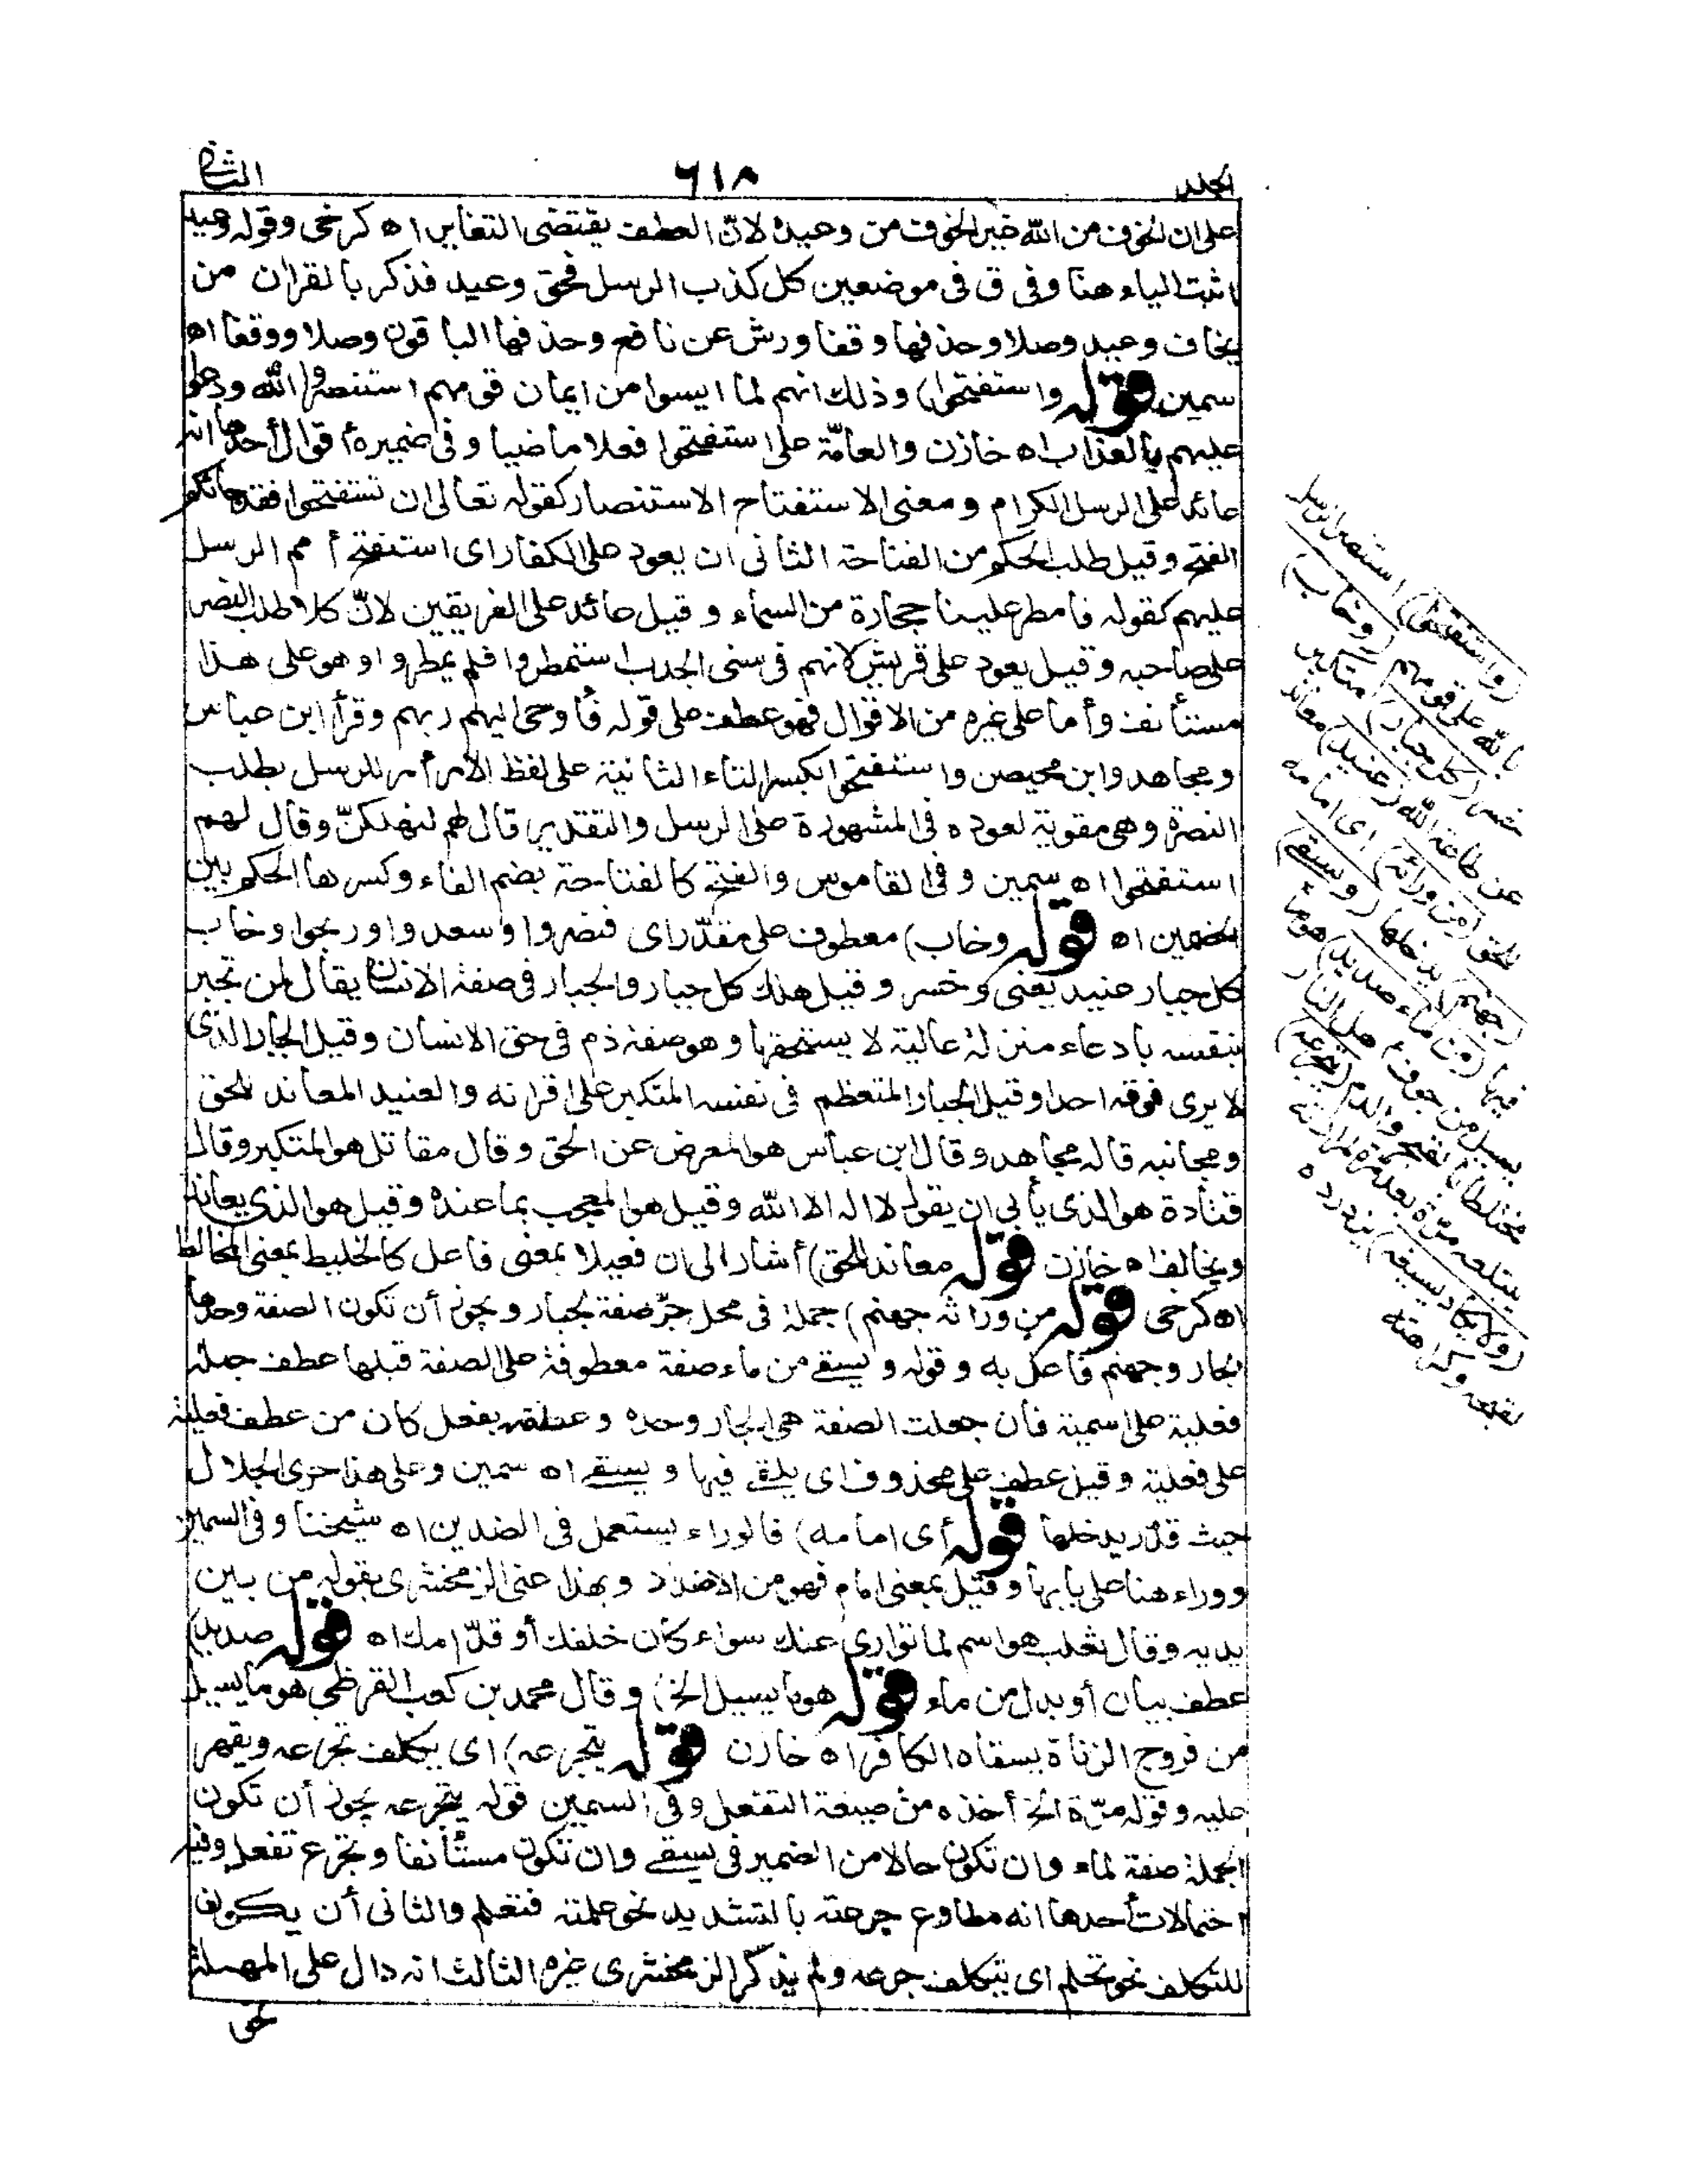 الجلد
٦١٨
الثانى
على ان الخوف من الله غير الخوف من وعيده لانّ العطف يقتضى التغاير اه كرخى وقوله وعيد
اثبت الياء هنا وفى ق فى موضعين كل كذب الرسل فحق وعيد فذكر بالقران من
يخاف وعيد وصلا وحذفها وقفا ورش عن نافع وحذفها الباقون وصلا ووقفا اه
سمين قوله واستفتحوا) وذلك انهم لما ايسوا من ايمان قومهم استنصروا الله ودعوا
عليهم بالعذاب اه خازن والعامّة على استفتحوا فعلا ماضيا وفى ضميره أقوال أحدها انه
عائد على الرسل الكرام ومعنى الاستفتاح الاستنصار كقوله تعالى ان تستفتحوا فقد جاءكم
الفتح وقيل طلب الحكم من الفتاحة الثانى ان يعود على الكفار اى استفتح أمم الرسل
عليهم كقوله فامطر علينا حجارة من السماء وقيل عائد على الفريقين لانّ كلا طلب النصر
على صاحبه وقيل يعود على قريش لانهم فى سنى الجدب استمطروا فلم يمطروا وهو على هذا
مستأنف وأما على غيره من الاقوال فهو عطف على قوله فأوحى اليهم ربهم وقرأ ابن عباس
ومجاهد وابن محيصن واستفتحوا بكسر التاء الثانية على لفظ الأمر أمر للرسل بطلب
النصرة وهى مقوية لعوده فى المشهورة على الرسل والتقدير قال لهم لنهلكنّ وقال لهم
استفتحوا اه سمين وفى القاموس والفتح كالفتاحة بضم الفاء وكسرها الحكم بين
الخصمين اه قوله وخاب) معطوف على مقدّر اى فنصروا وسعدوا وربحوا وخاب
كل جبار عنيد يعنى وخسر وقيل هلك كل جبار والجبار فى صفة الانسان يقال لمن تجبر
بنفسه بادعاء منزلة عالية لا يستحقها وهو صفة ذم فى حق الانسان وقيل الجبار الذى
لا يرى فوقه احدا وقيل الجبار المتعظم فى نفسه المتكبر على اقرانه والعنيد المعاند للحق
ومجانبه قاله مجاهد وقال ابن عباس هو المعرض عن الحق وقال مقاتل هو المتكبر وقال
قتادة هو الذى يأبى ان يقول لا اله الا الله وقيل هو المعجب بما عنده وقيل هو الذى يعاند
ويخالف اه خازن قوله معاند للحق) أشار الى ان فعيلا بمعنى فاعل كالخليط بمعنى المخالط
اه كرخى قوله من ورائه جهنم) جملة فى محل جرّ صفة لجبار ويجوز أن تكون الصفة وحدها
الجار وجهنم فاعل به وقوله ويسقى من ماء صفة معطوفة على الصفة قبلها عطف جملة
فعلية على اسمية فان جعلت الصفة هى الجار وحده وعلقته بفعل كان من عطف فعلية
على فعلية وقيل عطف على محذوف اى يلقى فيها ويسقى اه سمين وعلى هذا جرى الجلال
حيث قدّر يدخلها قوله أى امامه) فالوراء يستعمل فى الضدين اه شيخنا وفى السمين
ووراء هنا على بابها وقيل بمعنى امام فهو من الاضداد وبهذا عنى الزمخشرى بقوله من بين
يديه وقال ثعلب هو اسم لما توارى عنك سواء كان خلفك أو قدّامك اه قوله صديد)
عطف بيان أو بدل من ماء قوله هو ما يسيل الخ) وقال محمد بن كعب القرظى هو ما يسيل
من فروج الزناة يسقاه الكافر اه خازن قوله يتجرعه) اى يتكلف تجرعه ويقهر
عليه وقوله مرّة الخ أخذه من صيغة التفعل وفى السمين قوله يتجرعه يجوز أن تكون
الجملة صفة لماء وان تكون حالا من الضمير فى يسقى وان تكون مستأنفا وتجرع تفعل وفيه
احتمالات أحدها انه مطاوع جرعته بالتشديد نحو علمته فتعلم والثانى أن يكون
للتكلف نحو تحلم اى يتكلف جرعه ولم يذكر الزمخشرى غيره الثالث انه دال على المهملة
نحو
(واستفتحوا) استنصر الرسل
بالله على قومهم (وخاب)
خسر (كل جبار) متكبر
عن طاعة الله (عنيد) معاند
للحق (من ورائه) اى امامه
(جهنم) يدخلها (ويسقى)
فيها (من ماء صديد) هو ما
يسيل من جوف اهل النار
مختلطا بالقيح والدم (يتجرعه)
يبتلعه مرّة بعد مرة لمرارته
(ولا يكاد يسيغه) يزدرده
لقبحه وكراهته